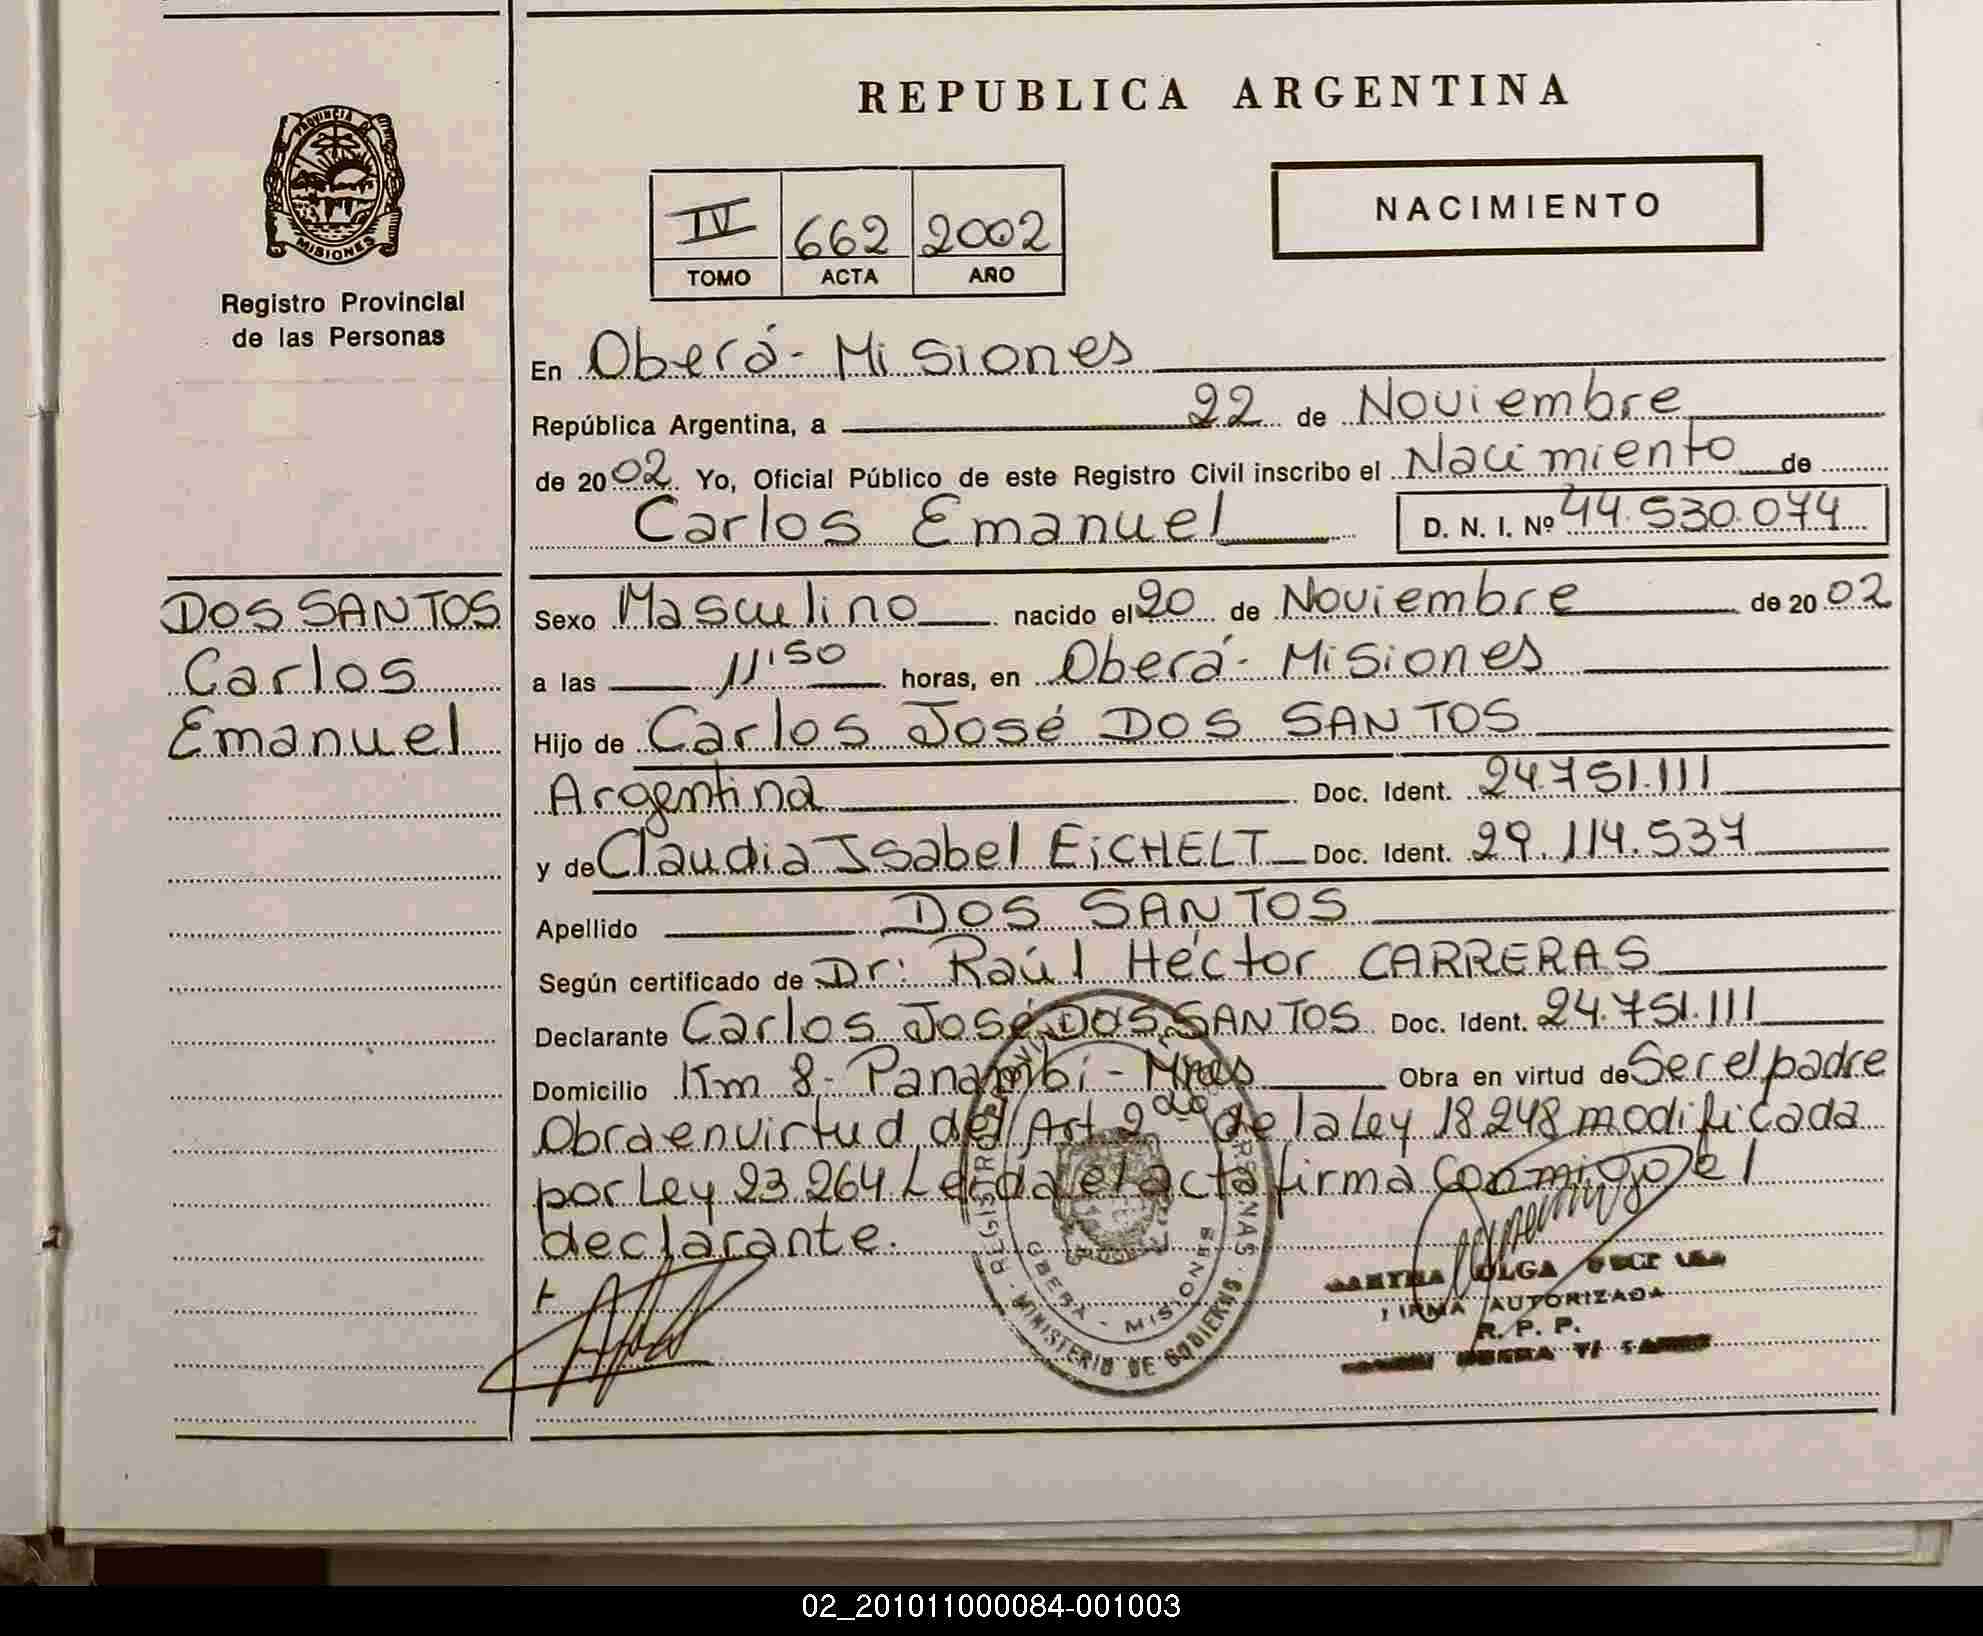 REPUBLICA ARGENTINA
PROVINCIA DE
MISIONES
Registro Provincial
de las Personas
IV 662 2002
TOMO ACTA AÑO
NACIMIENTO
En Oberá - Misiones
República Argentina, a 22 de Noviembre
de 2002 Yo, Oficial Público de este Registro Civil inscribo el Nacimiento de
Carlos Emanuel D. N. I. Nº 44.530.074
DOS SANTOS
Carlos
Emanuel
Sexo Masculino nacido el 20 de Noviembre de 2002
a las 11'50 horas, en Oberá - Misiones
Hijo de Carlos José DOS SANTOS
Argentina Doc. Ident. 24.751.111
y de Claudia Isabel EiCHELT Doc. Ident. 29.114.537
Apellido DOS SANTOS
Según certificado de Dr: Raúl Héctor CARRERAS
Declarante Carlos José DOS SANTOS Doc. Ident. 24.751.111
Domicilio Km 8 - Panambí - Mnes Obra en virtud de Ser el padre
Obra en virtud del Art 2do de la Ley 18.248 modificada
por Ley 23.264 Leida el acta firma conmigo el
declarante.
OBERA - MISIONES
MINISTERIO DE GOBIERNO
OLGA
FIRMA AUTORIZADA
R. P. P.
02_201011000084-001003